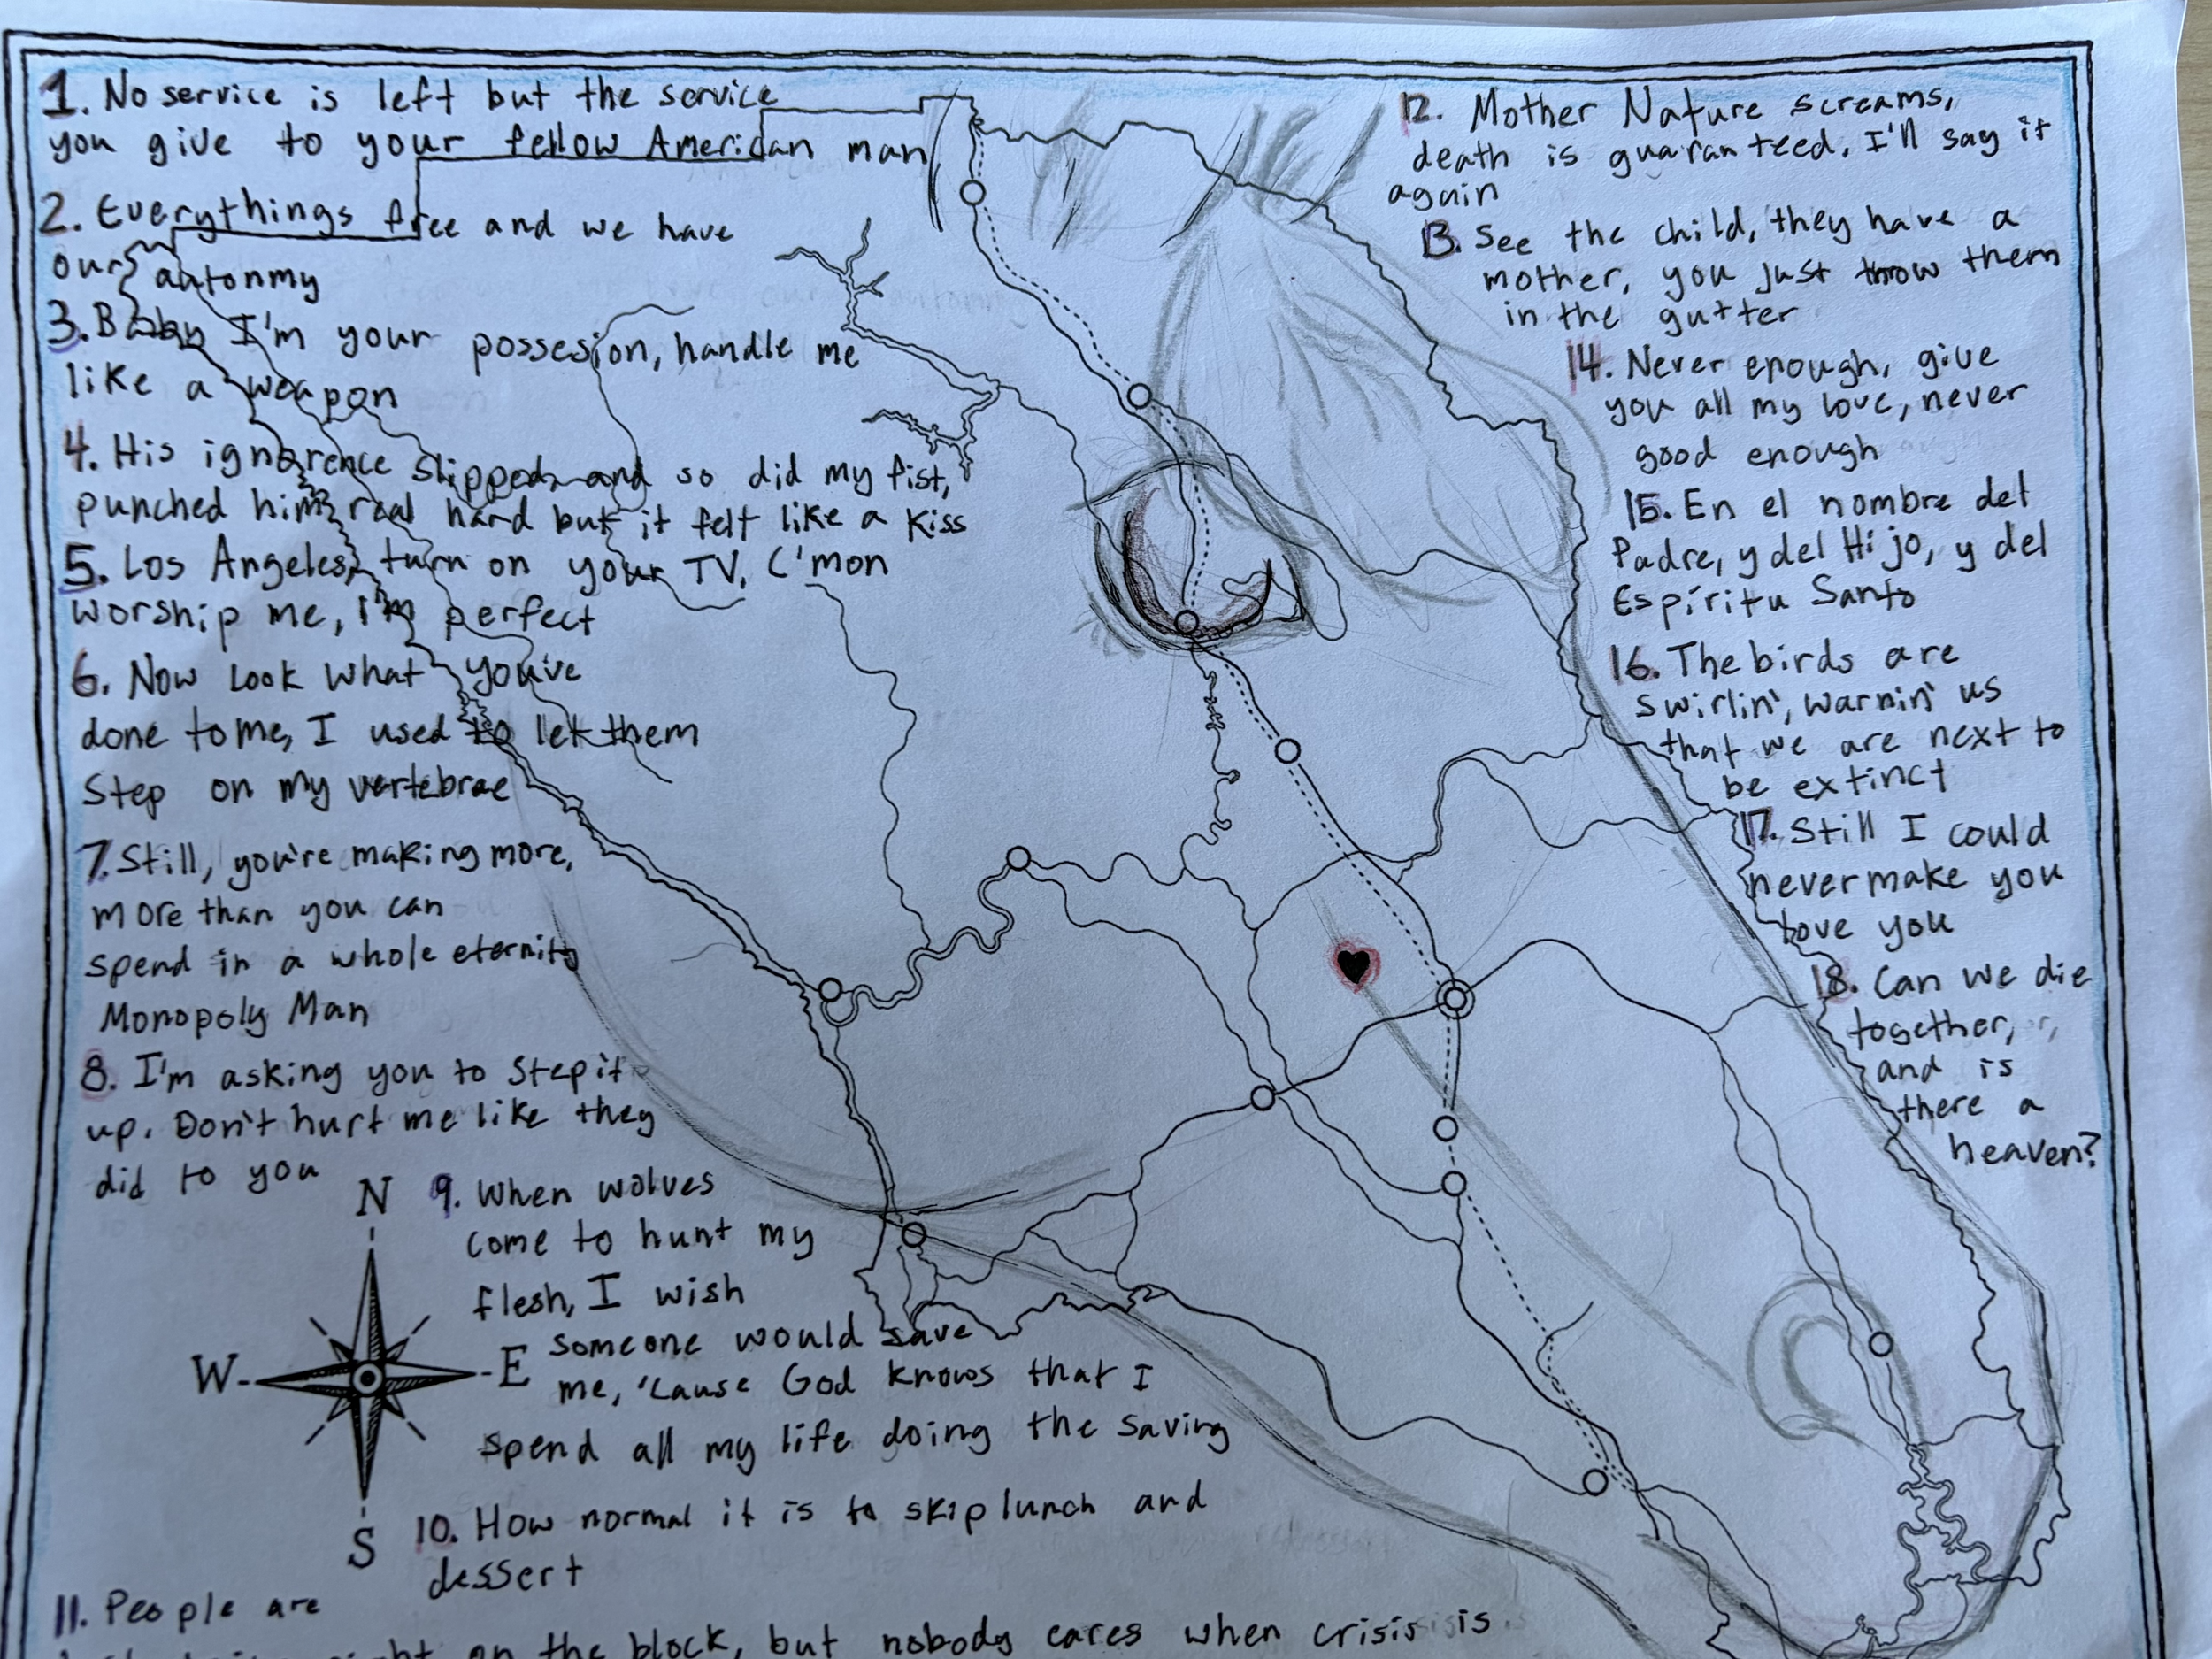 1. No service is left but the service
you give to your fellow American man
2. Everythings free and we have
our autonmy
3. Baby I'm your possesion, handle me
like a weapon
4. His ignorence slipped and so did my fist,
punched him real hard but it felt like a kiss
5. Los Angeles, turn on your TV, C'mon
worship me, I'm perfect
6. Now look what you've
done to me, I used to let them
Step on my vertebrae
7. Still, you're making more,
more than you can
spend in a whole eternity
Monopoly Man
8. I'm asking you to Step it
up. Don't hurt me like they
did to you
N
W
E
S
9. When wolves
come to hunt my
flesh, I wish
someone would save
me, 'cause God knows that I
spend all my life doing the saving
10. How normal it is to skip lunch and
dessert
11. People are
on the block, but nobody cares when crisis is
12. Mother Nature screams,
death is guaranteed, I'll say it
again
13. See the child, they have a
mother, you just throw them
in the gutter
14. Never enough, give
you all my love, never
good enough
15. En el nombre del
Padre, y del Hijo, y del
Espíritu Santo
16. The birds are
swirlin', warnin' us
that we are next to
be extinct
17. Still I could
never make you
love you
18. Can we die
together,
and is
there a
heaven?